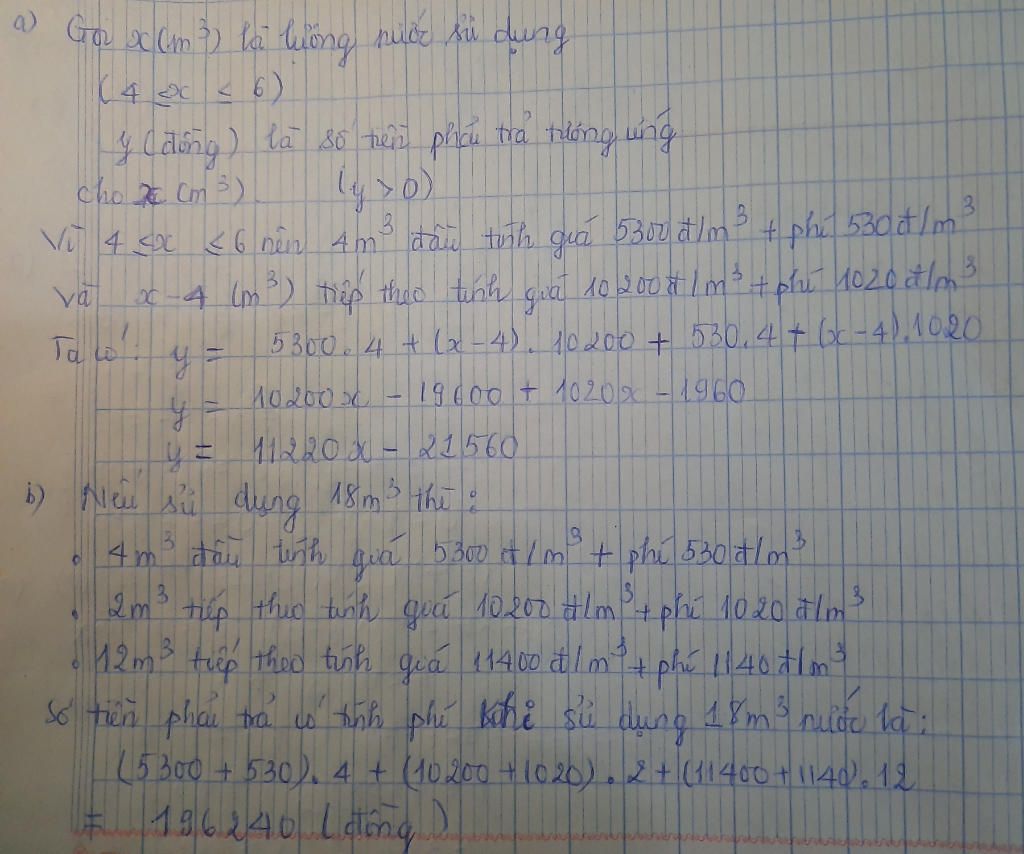 a) Gọi x(m³) là lượng nước sử dụng
(4 ≤ x ≤ 6)
y (đồng) là số tiền phải trả tương ứng
cho x (m³) (y > 0)
Vì 4 ≤ x ≤ 6 nên 4m³ đầu tính giá 5300 đ/m³ + phí 530 đ/m³
và x - 4 (m³) tiếp theo tính giá 10200 đ/m³ + phí 1020 đ/m³
Ta có: y = 5300.4 + (x-4).10200 + 530.4 + (x-4).1020
y = 10200x - 19600 + 1020x - 1960
y = 11220x - 21560
b) Nếu sử dụng 18m³ thì:
• 4m³ đầu tính giá 5300 đ/m³ + phí 530 đ/m³
• 2m³ tiếp theo tính giá 10200 đ/m³ + phí 1020 đ/m³
• 12m³ tiếp theo tính giá 11400 đ/m³ + phí 1140 đ/m³
Số tiền phải trả có tính phí khi sử dụng 18m³ nước là:
(5300 + 530).4 + (10200 + 1020).2 + (11400 + 1140).12
= 196240 (đồng)